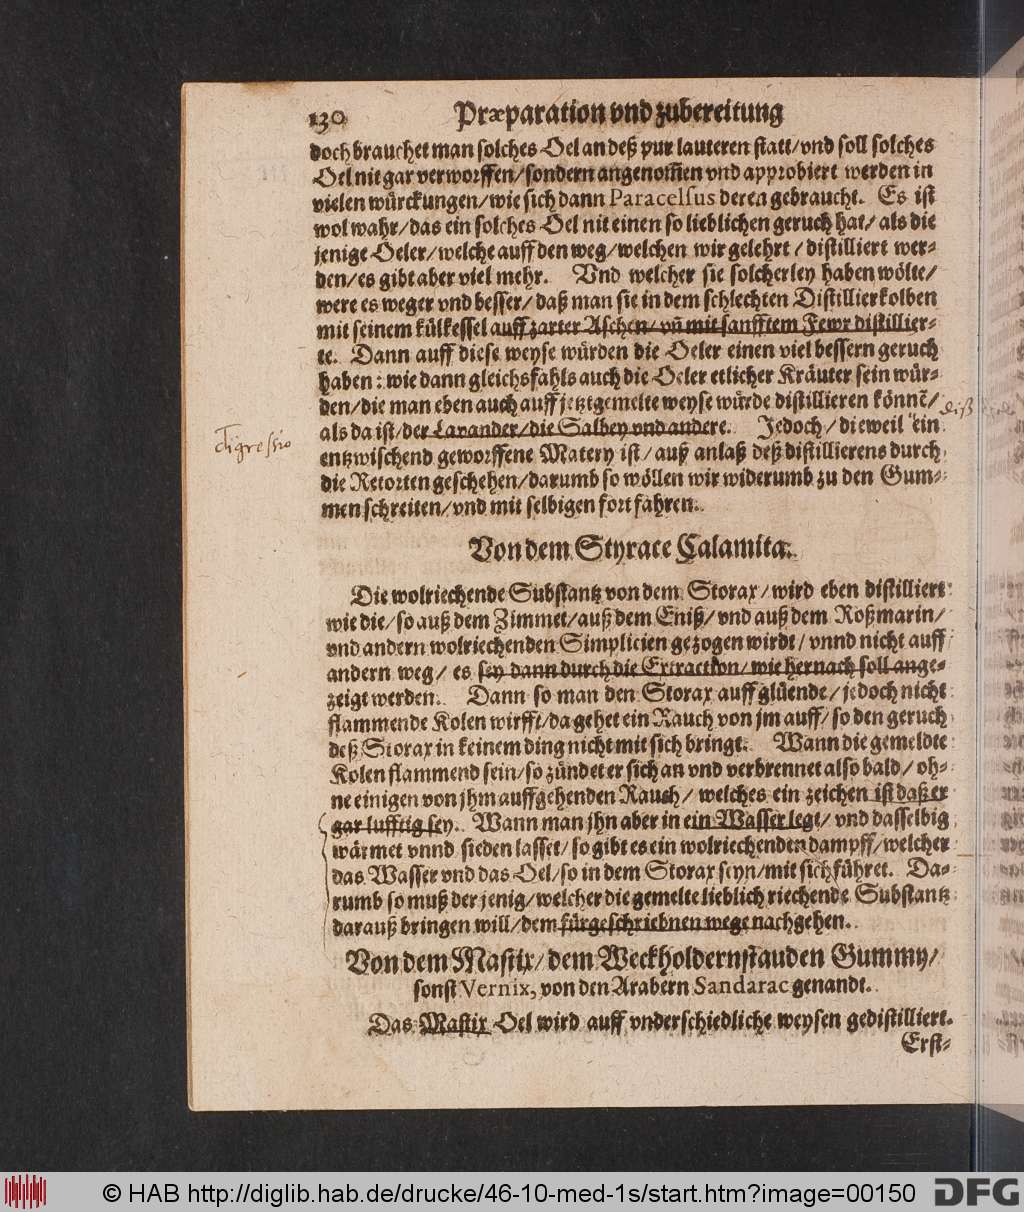 130 Præparation vnd zubereitung
doch brauchet man solches Oel an deß pur lauteren statt/ vnd soll solches
Oel nit gar verworffen/ sondern angenom̃en vnd approbiert werden in
vielen würckungen/ wie sich dann Paracelsus deren gebraucht. Es ist
wol wahr/ das ein solches Oel nit einen so lieblichen geruch hat/ als die
jenige Oeler/ welche auff den weg/ welchen wir gelehrt/ distilliert wer-
den/ es gibt aber viel mehr. Vnd welcher sie solcherley haben wölte/
were es weger vnd besser/ daß man sie in dem schlechten Distillierkolben
mit seinem külkessel auff zarter Aschen/ vñ mit sanfftem Fewr distillier-
te. Dann auff diese weyse würden die Oeler einen viel bessern geruch
haben: wie dann gleichsfahls auch die Oeler etlicher Kräuter sein wür-
den/ die man eben auch auff jetztgemelte weyse würde distillieren könnẽ/
diß
als da ist/ der Lavander/ die Salbey vnd andere. Jedoch/ dieweil ein
Digressio
entzwischend geworffene Matery ist/ auß anlaß deß distillierens durch
die Retorten geschehen/ darumb so wöllen wir widerumb zu den Gum-
men schreiten/ vnd mit selbigen fort fahren.
Von dem Styrace Calamita.
Die wolriechende Substantz von dem Storax/ wird eben distilliert
wie die/ so auß dem Zimmet/ auß dem Eniß/ vnd auß dem Roßmarin/
vnd andern wolriechenden Simplicien gezogen wirdt/ vnnd nicht auff
andern weg/ es sey dann durch die Extraction/ wie hernach soll ange-
zeigt werden. Dann so man den Storax auff glüende/ jedoch nicht
flammende Kolen wirfft/ da gehet ein Rauch von jm auff/ so den geruch
deß Storax in keinem ding nicht mit sich bringt. Wann die gemeldte
Kolen flammend sein/ so zündet er sich an vnd verbrennet also bald/ oh-
ne einigen von jhm auffgehenden Rauch/ welches ein zeichen ist daß er
gar lufftig sey. Wann man jhn aber in ein Wasser legt/ vnd dasselbig
wärmet vnnd sieden lasset/ so gibt es ein wolriechenden dampff/ welcher
das Wasser vnd das Oel/ so in dem Storax seyn/ mit sich führet. Da-
rumb so muß der jenig/ welcher die gemelte lieblich riechende Substantz
darauß bringen will/ dem fürgeschriebnen wege nachgehen.
Von dem Mastix/ dem Weckholdernstauden Gummy/
sonst Vernix, von den Arabern Sandarac genandt.
Das Mastix Oel wird auff vnderschiedliche weysen gedistilliert.
Erst-
© HAB http://diglib.hab.de/drucke/46-10-med-1s/start.htm?image=00150
DFG